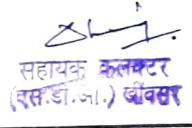 सहायक कलक्टर
(एस.डी.ओ.) खींवसर